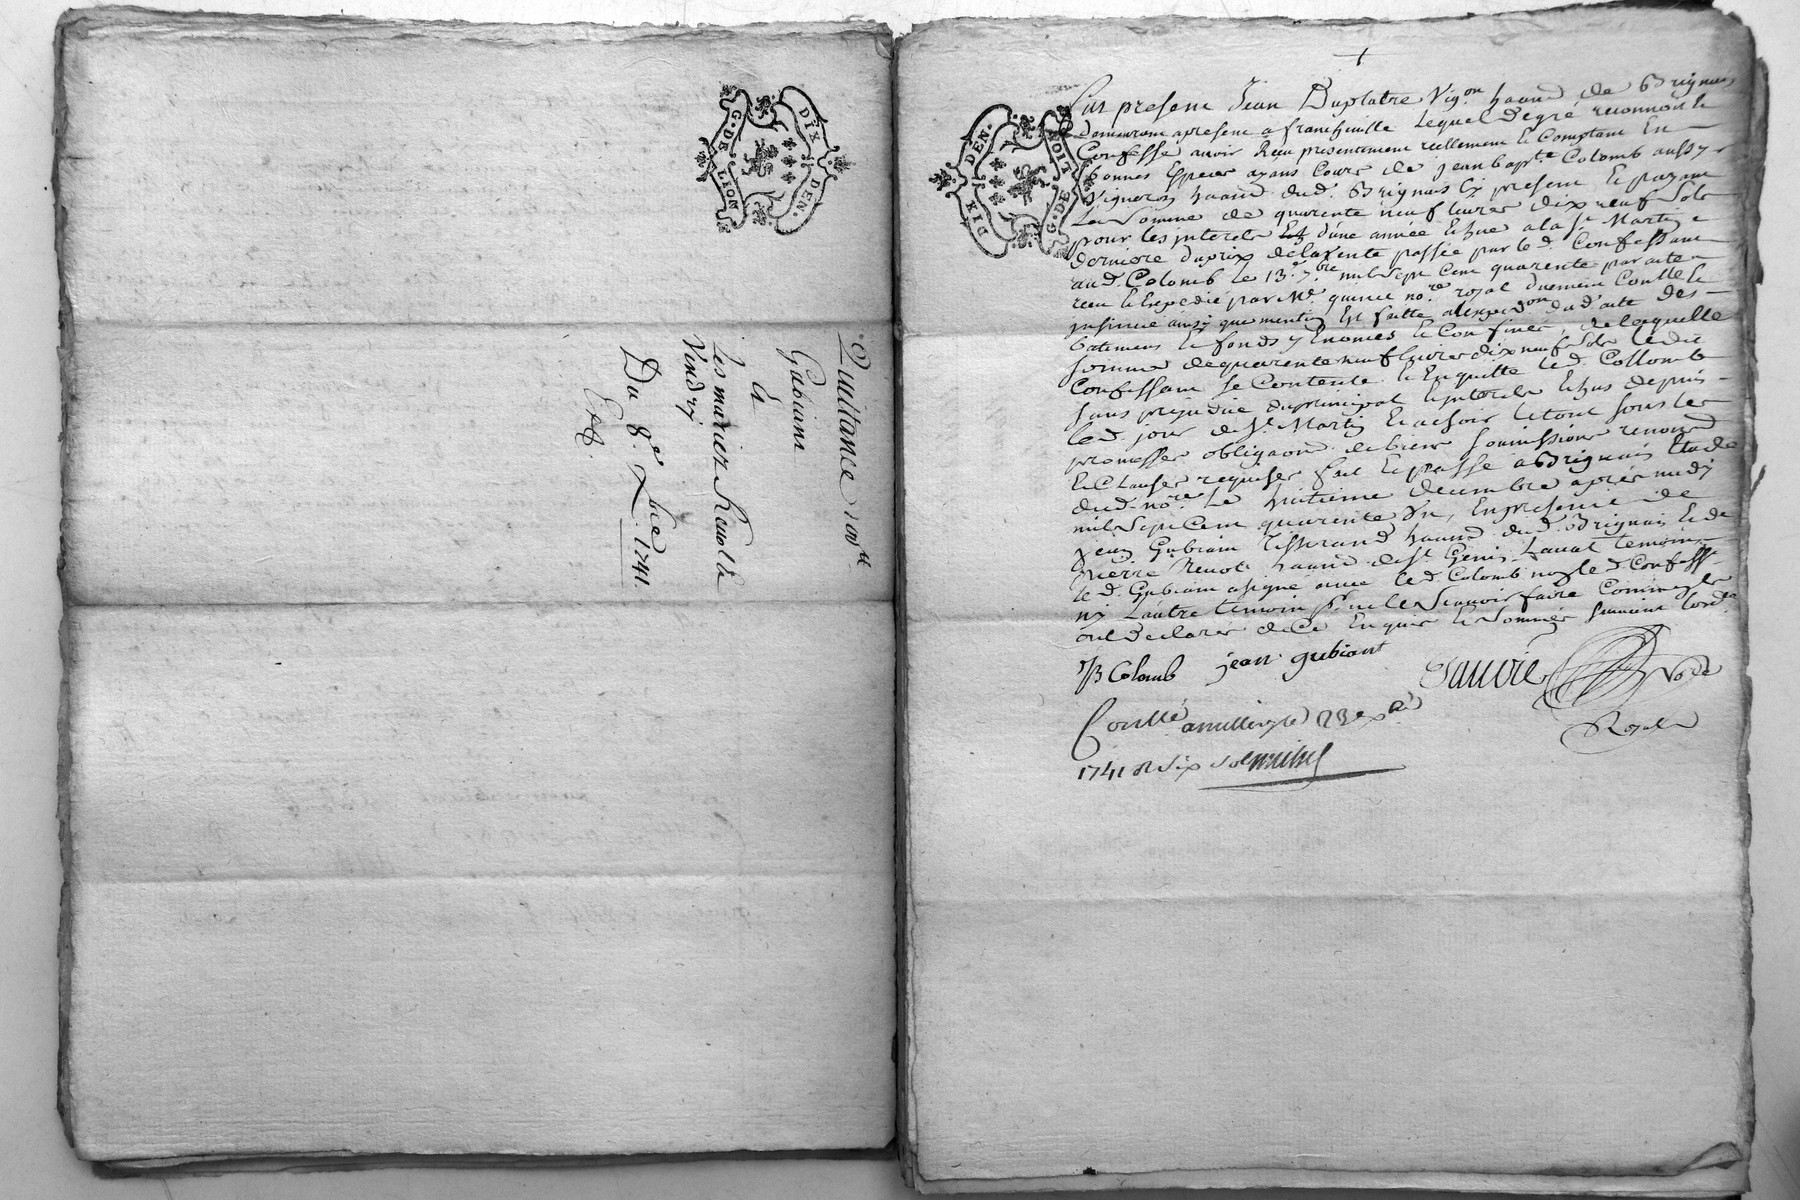 G. DE LION
DIX DEN.
Quittance 10 #
Gubiaine
à
Les mariez
Vindry
Du 8e Xbre 1741
G. DE LION
DIX DEN.
Fut present Jean Duplatre Vig.on habit de Brignais
Demeurant apresent a francheville Lequel de gré reconnoit Et
Confesse avoir Receu presentement reellement Et Comptant En
bonnes Especes ayans Cours de Jean bap.te Colomb aussy
vigneron habit dud. Brignais Cy present Et payant
La Somme de quarente neuf livres dix neuf Sols
pour les interets d'une année Echue a la S.t Martin
derniere du prix de la Vente passée par led. Confessant
aud. Colomb le 13.e 7.bre mil Sept Cent quarente par acte
receu Et Expedié par M.e no.re royal duement Conttlé Et
insinué ainsy que mention Est faitte a l'exped.on dud. acte des
batimens Et fonds y Enoncés Et Confinés, de laquelle
somme de quarente neuf livres dix neuf Sols Ledit
Confessant Se Contente Et En quitte led. Collomb
Sans prejudice du principal Et interets Echus depuis
led. jour de S.t Martin Et a Echoir Le tout sous les
promesses obliga.ons de biens Soumissions renon.
Et Clauses requises fait Et passé a Brignais Etude
dud. no.re Le huitieme decembre après midy
mil Sept Cent quarente Un, En presence de
Jean Gubian Tisserand habit dud. Brignais Et de
pierre habit de S.t Genis Laval temoins
le d. Gubian a signé avec led. Colomb non led. Confess.t
ny L'autre temoin p.r ne le Scavoir faire Comme ils
ont declaré de Ce Enquis Et Sommés Suivant l'ord.ce
JB Colomb jean gubiant
Sauvie No.re
Royal
Conttlé a millery le 23 Xbre
1741 R dix sols